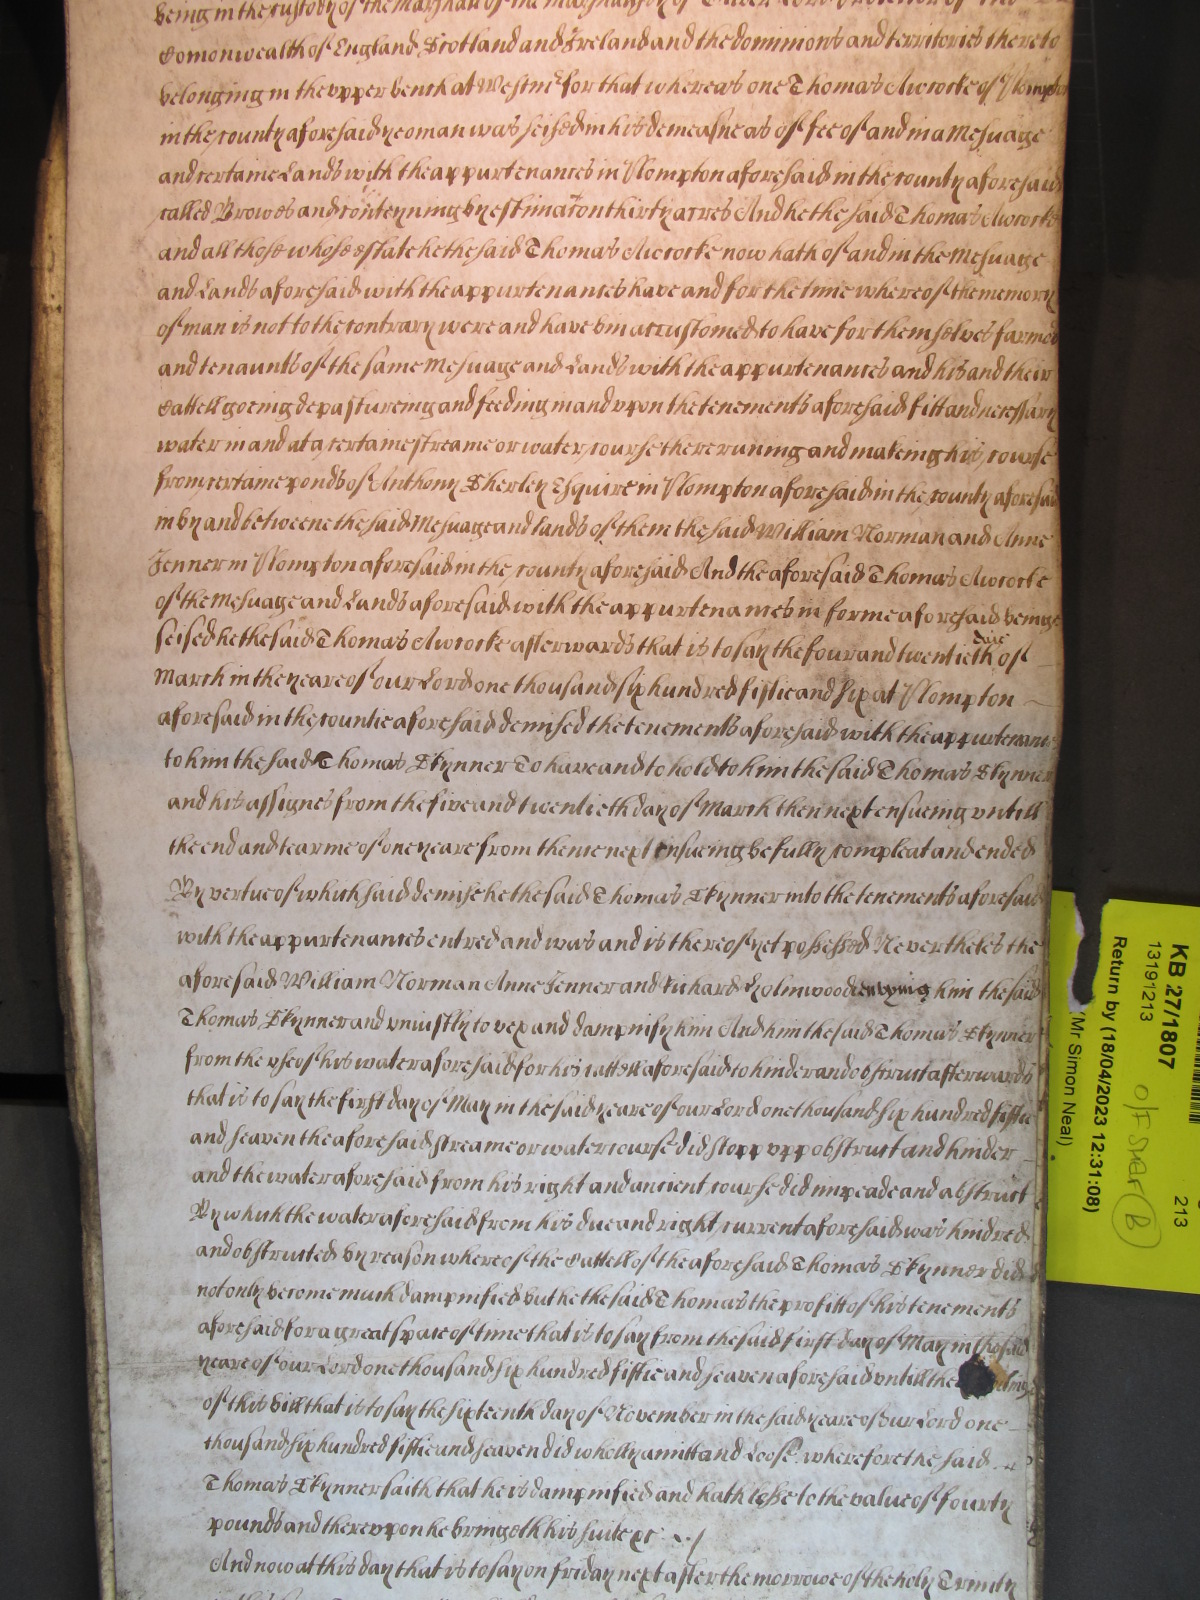 being in the custody of the Marshall of the Marshalsey of Oliver Lord Protector of the
Comonwealth of England Scotland and Ireland and the dominions and territories thereto
belonging in the upper bench at Westmr for that whereas one Thomas Awcocke of Plompton
in the county aforesaid yeoman was seised in his demeasne as of fee of and in a Mesuage
and certaine Lands with the appurtenances in Plompton aforesaid in the county aforesaid
called Browes and conteynning by estimacon thirty acres And he the said Thomas Awcocke
and all those whose estate he the said Thomas Awcocke now hath of and in the Mesuage
and Lands aforesaid with the appurtenances have and for the time whereof the memory
of man is not to the contrary were and have bin accustomed to have for themselves farmers
and tenaunts of the same Mesuage and Lands with the appurtenances and his and their
Cattell goeing depastureing and feeding in and upon the tenements aforesaid fitt and necessary
water in and at a certaine streame or water course there runing and makeing his course
from certaine ponds of Anthony Sherley Esquire in Plompton aforesaid in the county aforesaid
in by and betweene the said Mesuage and lands of them the said William Norman and Anne
Jenner in Plompton aforesaid in the county aforesaid And the aforesaid Thomas Awcocke
of the Mesuage and Lands aforesaid with the appurtenances in forme aforesaid being
seised he the said Thomas Awcocke afterwards that is to say the four and twentieth daie of
March in the yeare of our Lord one thousand six hundred fiftie and six at Plompton
aforesaid in the countie aforesaid demised the tenements aforesaid with the appurtenances
to him the said Thomas Skynner To have and to hold to him the said Thomas Skynner
and his assignes from the five and twentieth day of March then next ensueing untill
the end and tearme of one yeare from thence next ensueing be fully compleat and ended
By vertue of which said demise he the said Thomas Skynner into the tenements aforesaid
with the appurtenances entred and was and is thereof yet possessed Nevertheles the
aforesaid William Norman Anne Jenner and Richard Holmwood envying him the said
Thomas Skynner and uniustly to vex and dampnify him And him the said Thomas Skynner
from the use of his water aforesaid for his cattell aforesaid to hinder and obstruct afterwards
that is to say the first day of May in the said yeare of our Lord one thousand six hundred fiftie
and seaven the aforesaid streame or watercourse did stopp upp obstruct and hinder
and the water aforesaid from his right and ancient course did impeade and abstruct
By which the water aforesaid from his due and right current aforesaid was hindred
and obstructed by reason whereof the Cattell of the aforesaid Thomas Skynner did
not only become much dampnified but he the said Thomas the profitt of his tenements
aforesaid for a great space of time that is to say from the said first day of May in the said
yeare of our Lord one thousand six hundred fiftie and seaven aforesaid untill the
of this bill that is to say the sixteenth day of November in the said yeare of our Lord one
thousand six hundred fiftie and seaven did wholly amitt and Loose wherefore the said
Thomas Skynner saith that he is dampnified and hath losse to the value of fourty
pounds and thereupon he bringeth his suite &c
And now at this day that is to say on friday next after the morrowe of the holy Trinity
KB 27/1807
13191213
Return by (18/04/2023 12:31:08)
(Mr Simon Neal)
O/F SHELF (B)
213